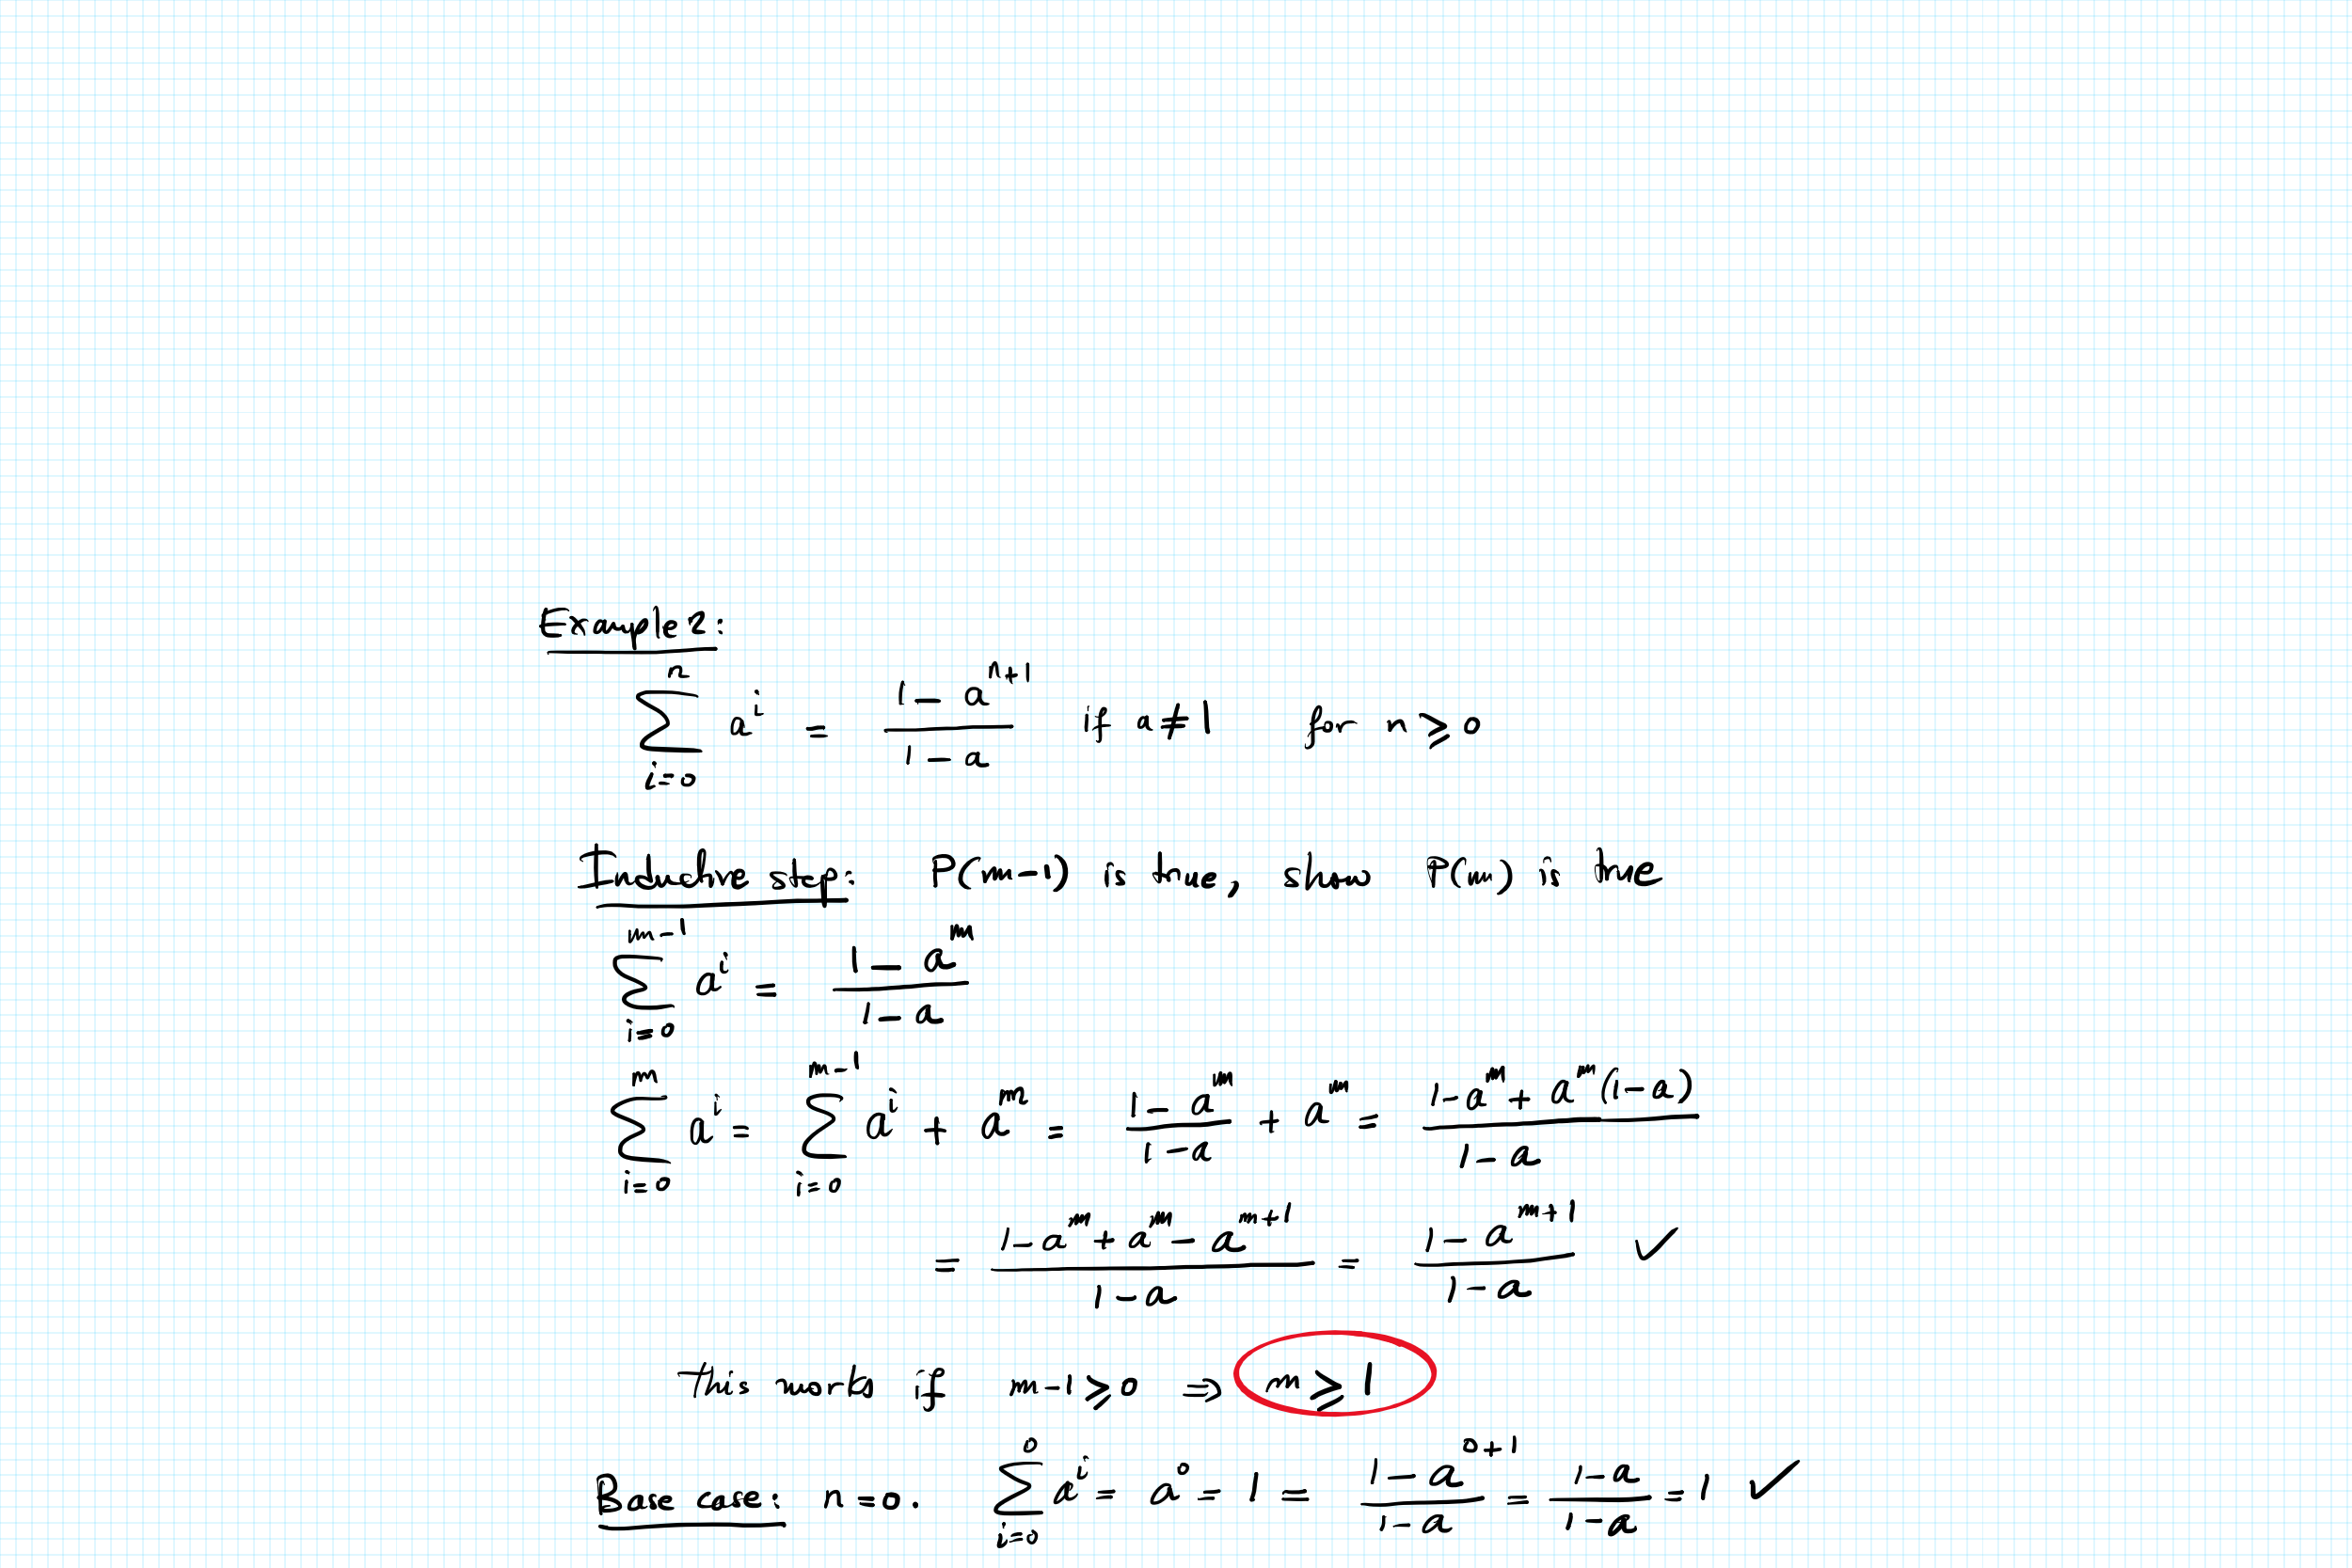 Example 2:
\sum_{i=0}^{n} a^i = \frac{1 - a^{n+1}}{1 - a} if a ≠ 1 for n ⩾ 0
Inductive step: P(m-1) is true, show P(m) is true
\sum_{i=0}^{m-1} a^i = \frac{1 - a^m}{1 - a}
\sum_{i=0}^{m} a^i = \sum_{i=0}^{m-1} a^i + a^m = \frac{1 - a^m}{1 - a} + a^m = \frac{1 - a^m + a^m(1-a)}{1 - a}
= \frac{1 - a^m + a^m - a^{m+1}}{1 - a} = \frac{1 - a^{m+1}}{1 - a} ✓
This works if m-1 ⩾ 0 ⇒ m ⩾ 1
Base case: n = 0. \sum_{i=0}^{0} a^i = a^0 = 1 = \frac{1 - a^{0+1}}{1 - a} = \frac{1 - a}{1 - a} = 1 ✓